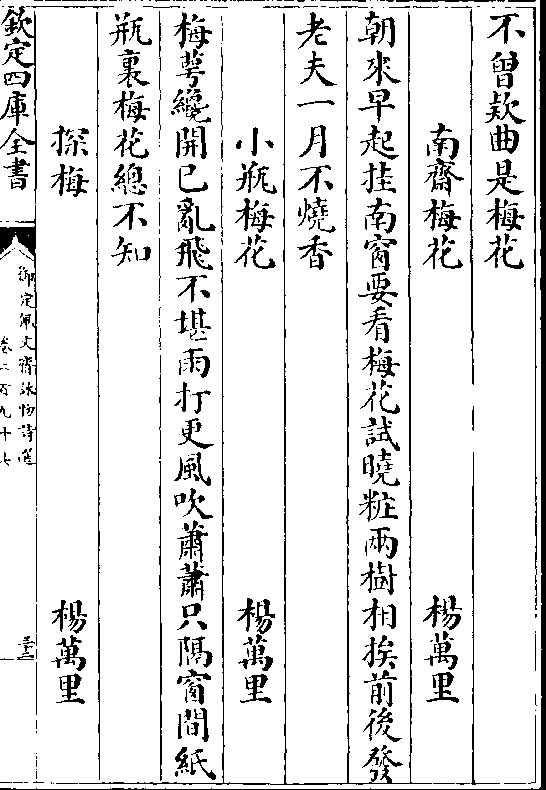 不曾欵曲是梅花
南齋梅花 楊萬里
朝來早起挂南窗要看梅花試曉粧兩樹相挨前後發
老夫一月不燒香
小瓶梅花 楊萬里
梅蕚纔開已亂飛不堪雨打更風吹蕭蕭只隔窗間紙
瓶裏梅花總不知
探梅 楊萬里
欽定四庫全書
御定佩文齋詠物詩選
卷二百九十七